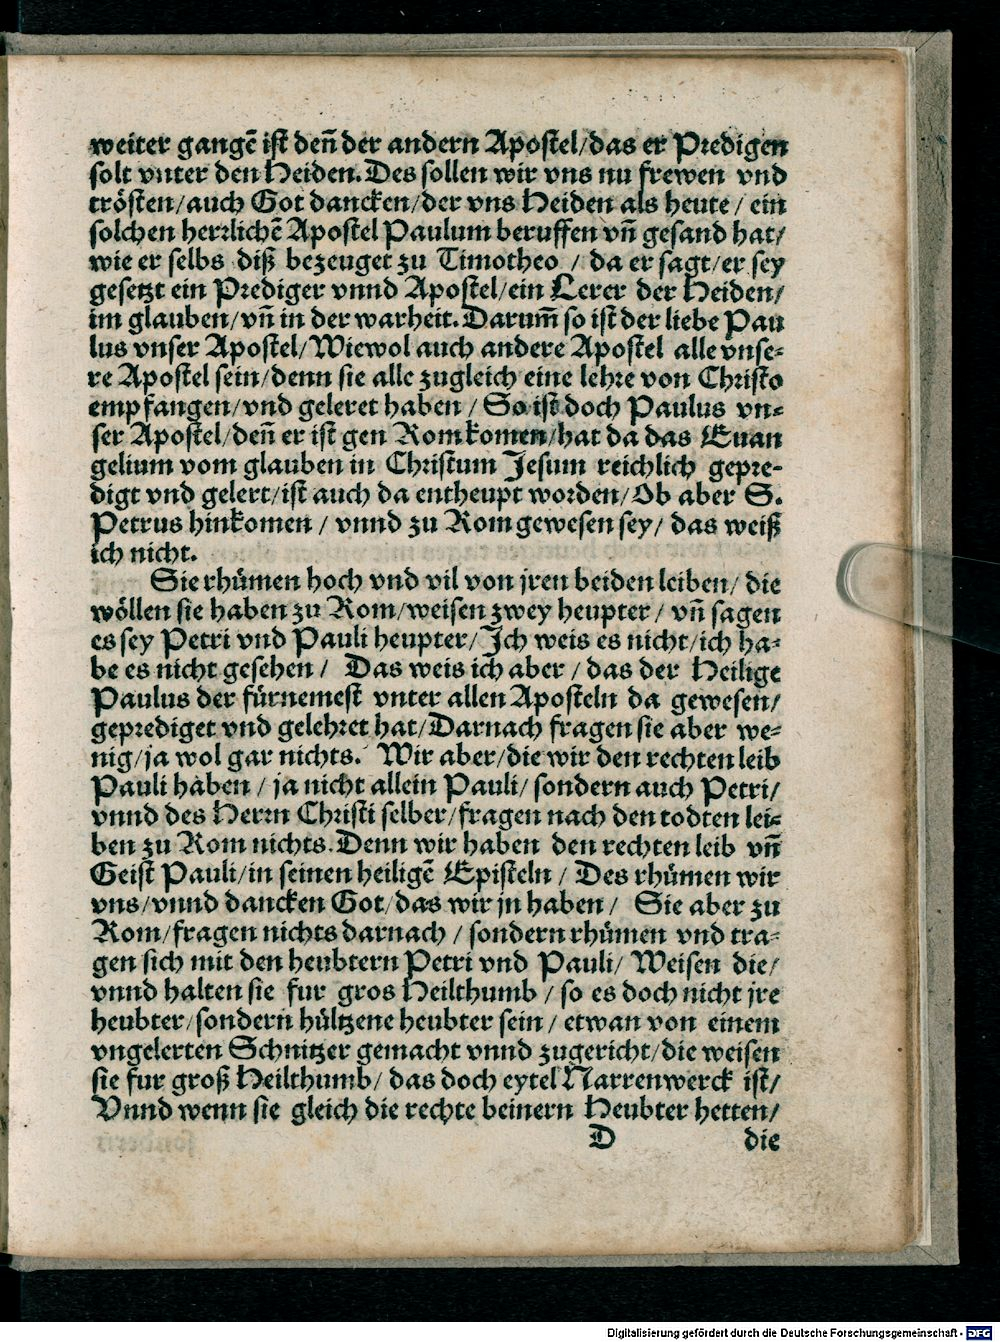 weiter gangē ist deñ der andern Apostel/das er Predigen
solt vnter den Heiden. Des sollen wir vns nu frewen vnd
trösten/auch Got dancken/der vns Heiden als heute/ ein
solchen herrlichē Apostel Paulum beruffen vñ gesand hat/
wie er selbs diß bezeuget zu Timotheo / da er sagt/er sey
gesetzt ein Prediger vnnd Apostel/ein Lerer der Heiden/
im glauben/vñ in der warheit. Darum̃ so ist der liebe Pau
lus vnser Apostel/Wiewol auch andere Apostel alle vnse-
re Apostel sein/denn sie alle zugleich eine lehre von Christo
empfangen/vnd geleret haben / So ist doch Paulus vn-
ser Apostel/deñ er ist gen Rom komen/hat da das Euan
gelium vom glauben in Christum Jesum reichlich gepre-
digt vnd gelert/ist auch da entheupt worden/Ob aber S.
Petrus hinkomen / vnnd zu Rom gewesen sey/ das weiß
ich nicht.
Sie rhůmen hoch vnd vil von jren beiden leiben/ die
wöllen sie haben zu Rom/weisen zwey heupter / vñ sagen
es sey Petri vnd Pauli heupter/Ich weis es nicht/ich ha-
be es nicht gesehen / Das weis ich aber / das der Heilige
Paulus der fürnemest vnter allen Aposteln da gewesen/
geprediget vnd gelehret hat/Darnach fragen sie aber we-
nig/ja wol gar nichts. Wir aber/die wir den rechten leib
Pauli haben / ja nicht allein Pauli/ sondern auch Petri/
vnnd des Herrn Christi selber/fragen nach den todten lei-
ben zu Rom nichts. Denn wir haben den rechten leib vñ
Geist Pauli/in seinen heiligē Episteln / Des rhůmen wir
vns/vnnd dancken Got/das wir jn haben / Sie aber zu
Rom/fragen nichts darnach / sondern rhůmen vnd tra-
gen sich mit den heubtern Petri vnd Pauli/ Weisen die/
vnnd halten sie fur gros Heilthumb / so es doch nicht jre
heubter/sondern hültzene heubter sein / etwan von einem
vngelerten Schnitzer gemacht vnnd zugericht/die weisen
sie fur groß Heilthumb/ das doch eytel Narrenwerck ist/
Vnnd wenn sie gleich die rechte beinern Heubter hetten/
D die
Digitalisierung gefördert durch die Deutsche Forschungsgemeinschaft - DFG